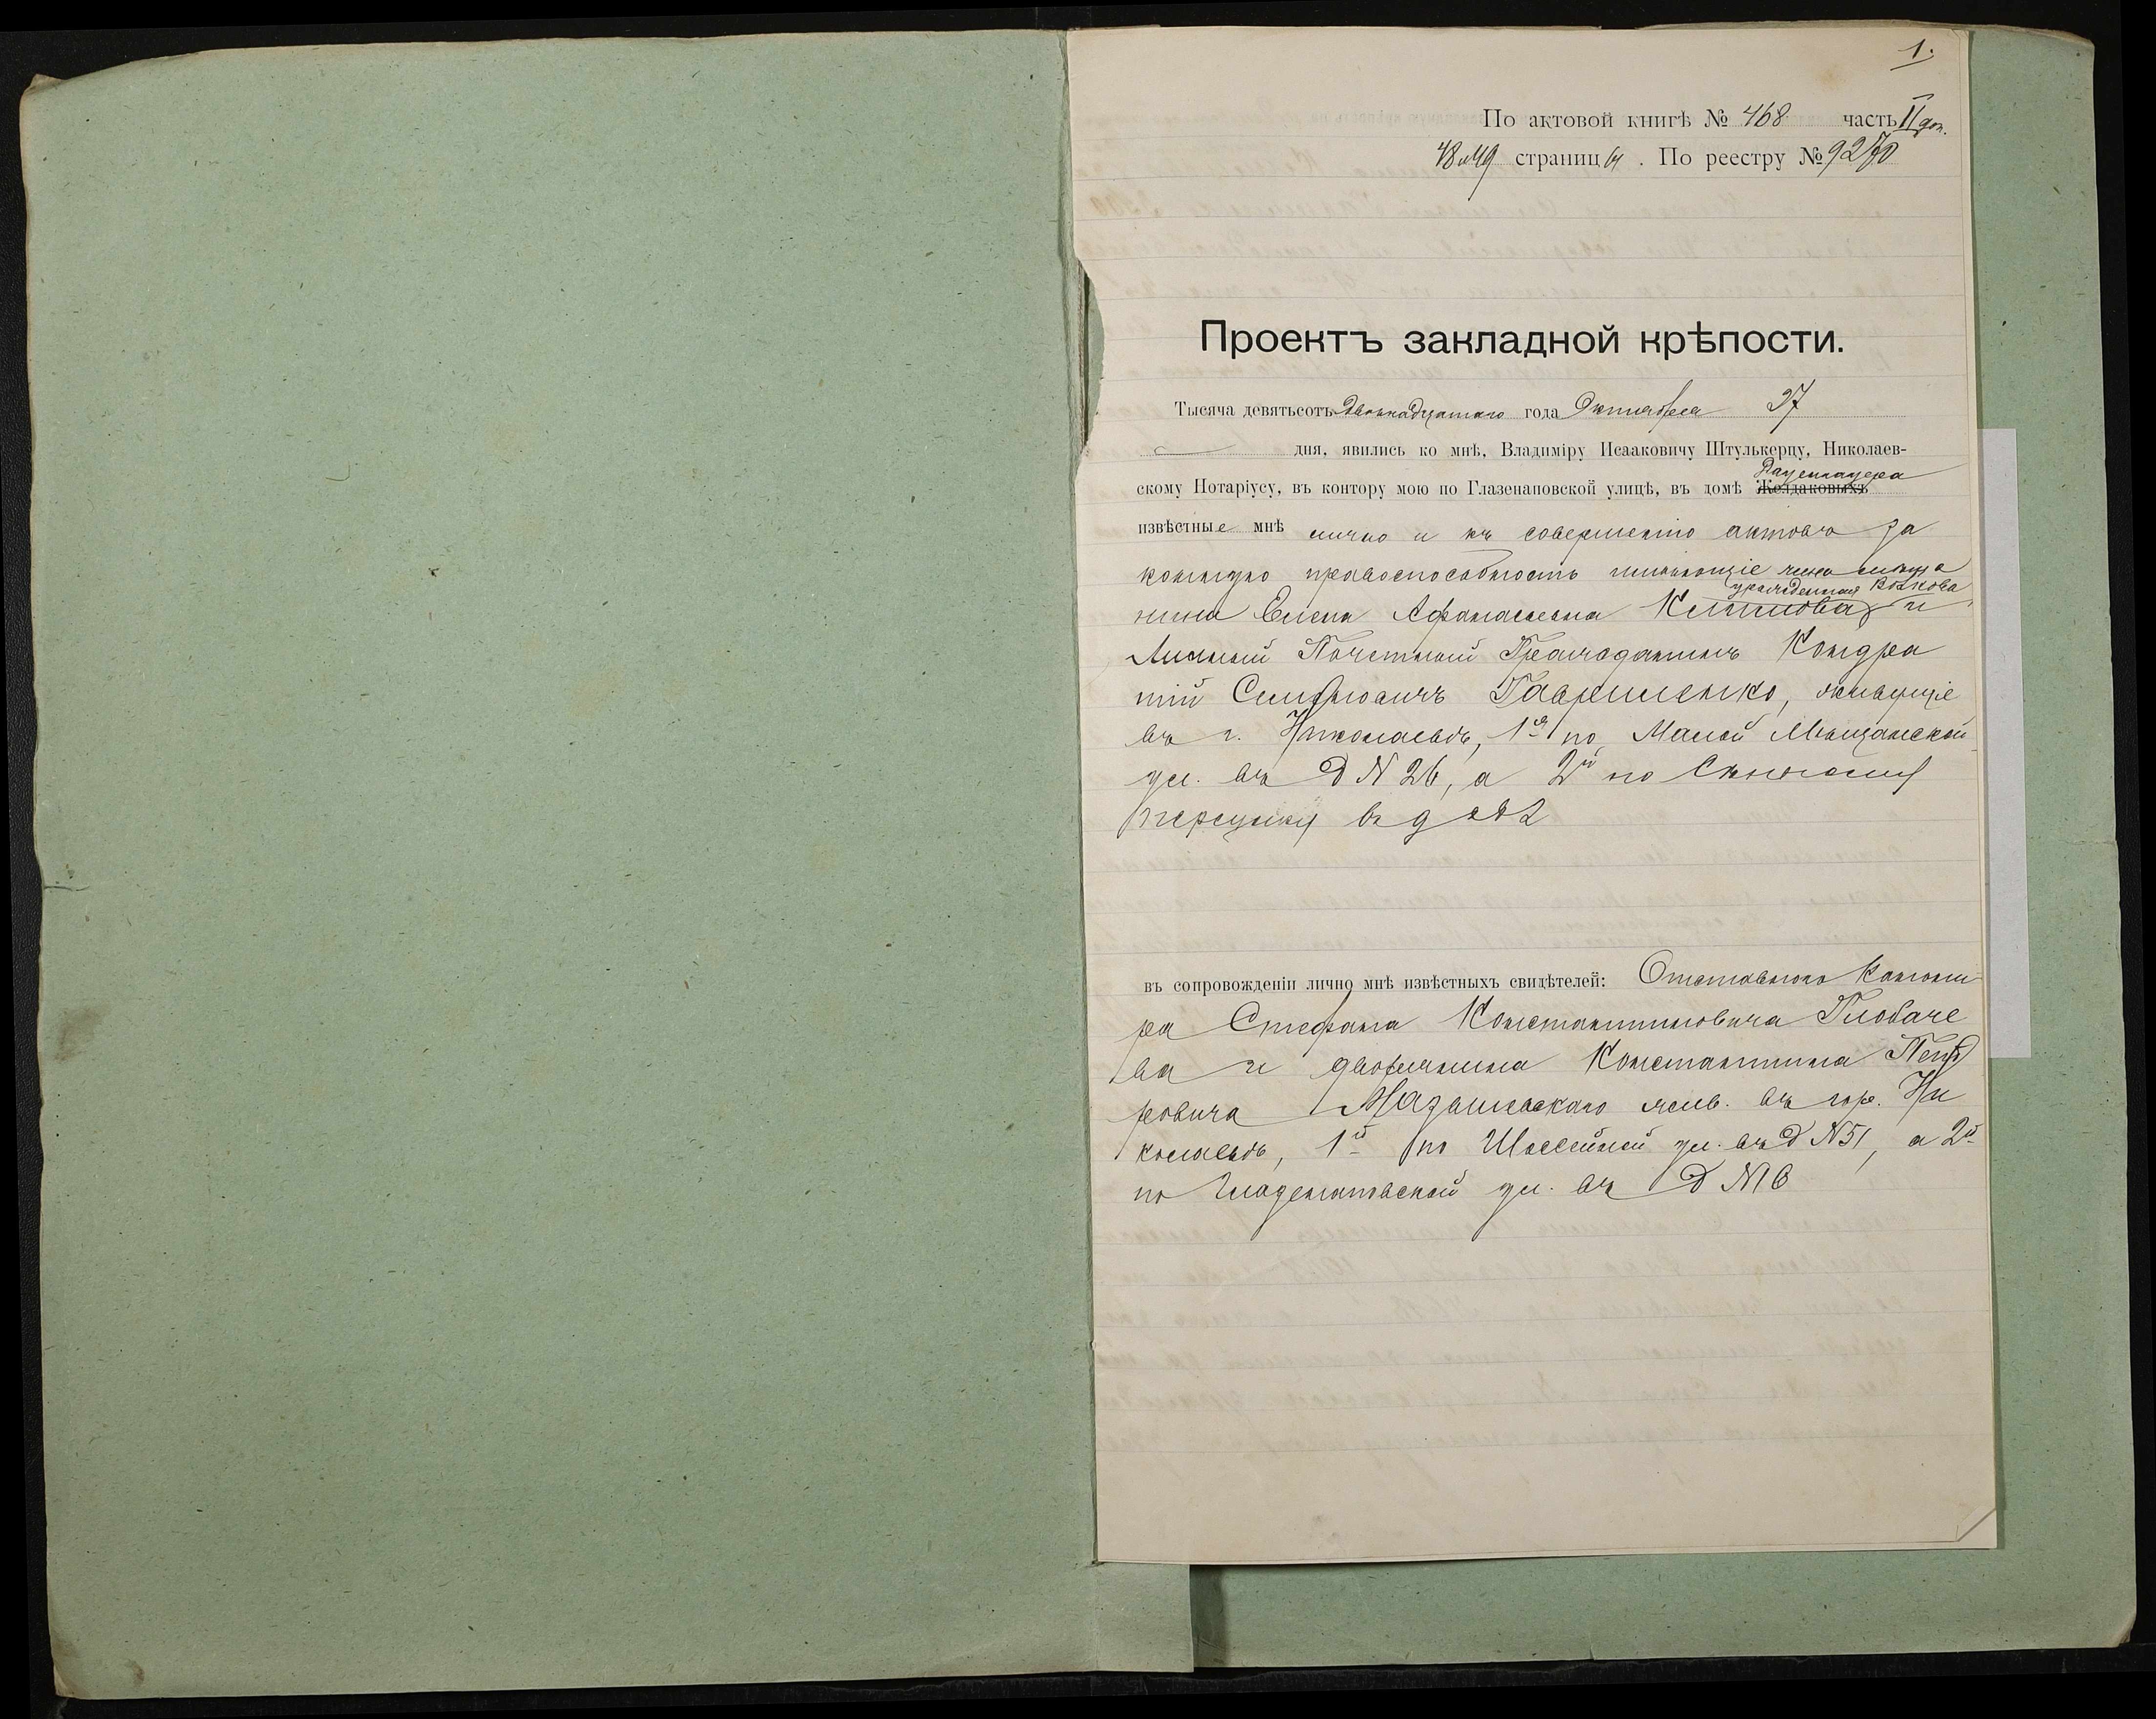 1.
По актовой книгѣ № 468 часть II доп.
48 и 49 страницы. По реестру № 9270
Проектъ закладной крѣпости.
Тысяча девятьсотъ двѣнадцатаго года Октября 27
дня, явились ко мнѣ, Владиміру Исааковичу Штулькерцу, Николаев-
скому Нотаріусу, въ контору мою по Глазенаповской улицѣ, въ домѣ Желдаковыхъ
извѣстные мнѣ лично и къ совершенію актовъ за
конную правоспособность имѣющіе
урожденная Волкова
Елена Афанасьевна Климова и
Личный Почетный Гражданинъ Кондра
тій Гавриленко, живущіе
въ г. Николаевѣ, 1я по Малой Мѣщанской
ул. въ д N 26, а 2й по
переулку въ д
въ сопровожденіи лично мнѣ извѣстныхъ свидѣтелей: Отставного Канони
ра Стефана Константиновича Глобаче
ва и дворянина Константина Пет
ровича жив. въ гор. Ни
колаевѣ, 1й по Шоссейной ул. въ д N 51, а 2й
по Глазенаповской ул. въ д N 6